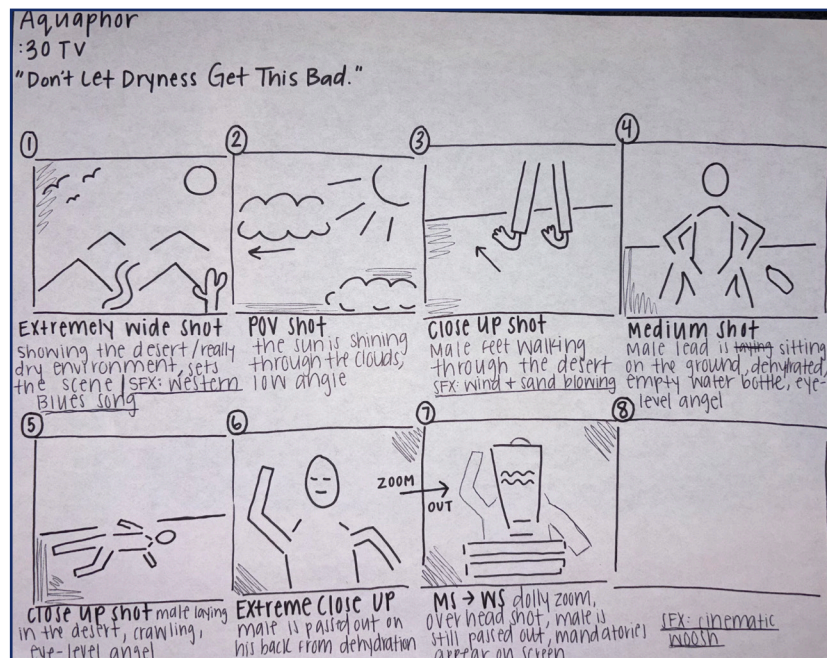 Aquaphor
:30 TV
"Don't Let Dryness Get This Bad."
1
Extremely wide shot
showing the desert/really
dry environment, sets
the scene | SFX: Western
Blues song
2
POV shot
the sun is shining
through the clouds,
low angle
3
Close up shot
Male feet walking
through the desert
SFX: wind + sand blowing
4
Medium shot
Male lead is laying sitting
on the ground, dehydrated,
empty water bottle, eye-
level angel
5
Close up shot male laying
in the desert, crawling,
eye-level angel
6
Extreme Close up
male is passed out on
his back from dehydration
ZOOM
OUT
7
MS → WS dolly zoom,
overhead shot, male is
still passed out, mandatories
appear on screen
8
SFX: cinematic
woosh